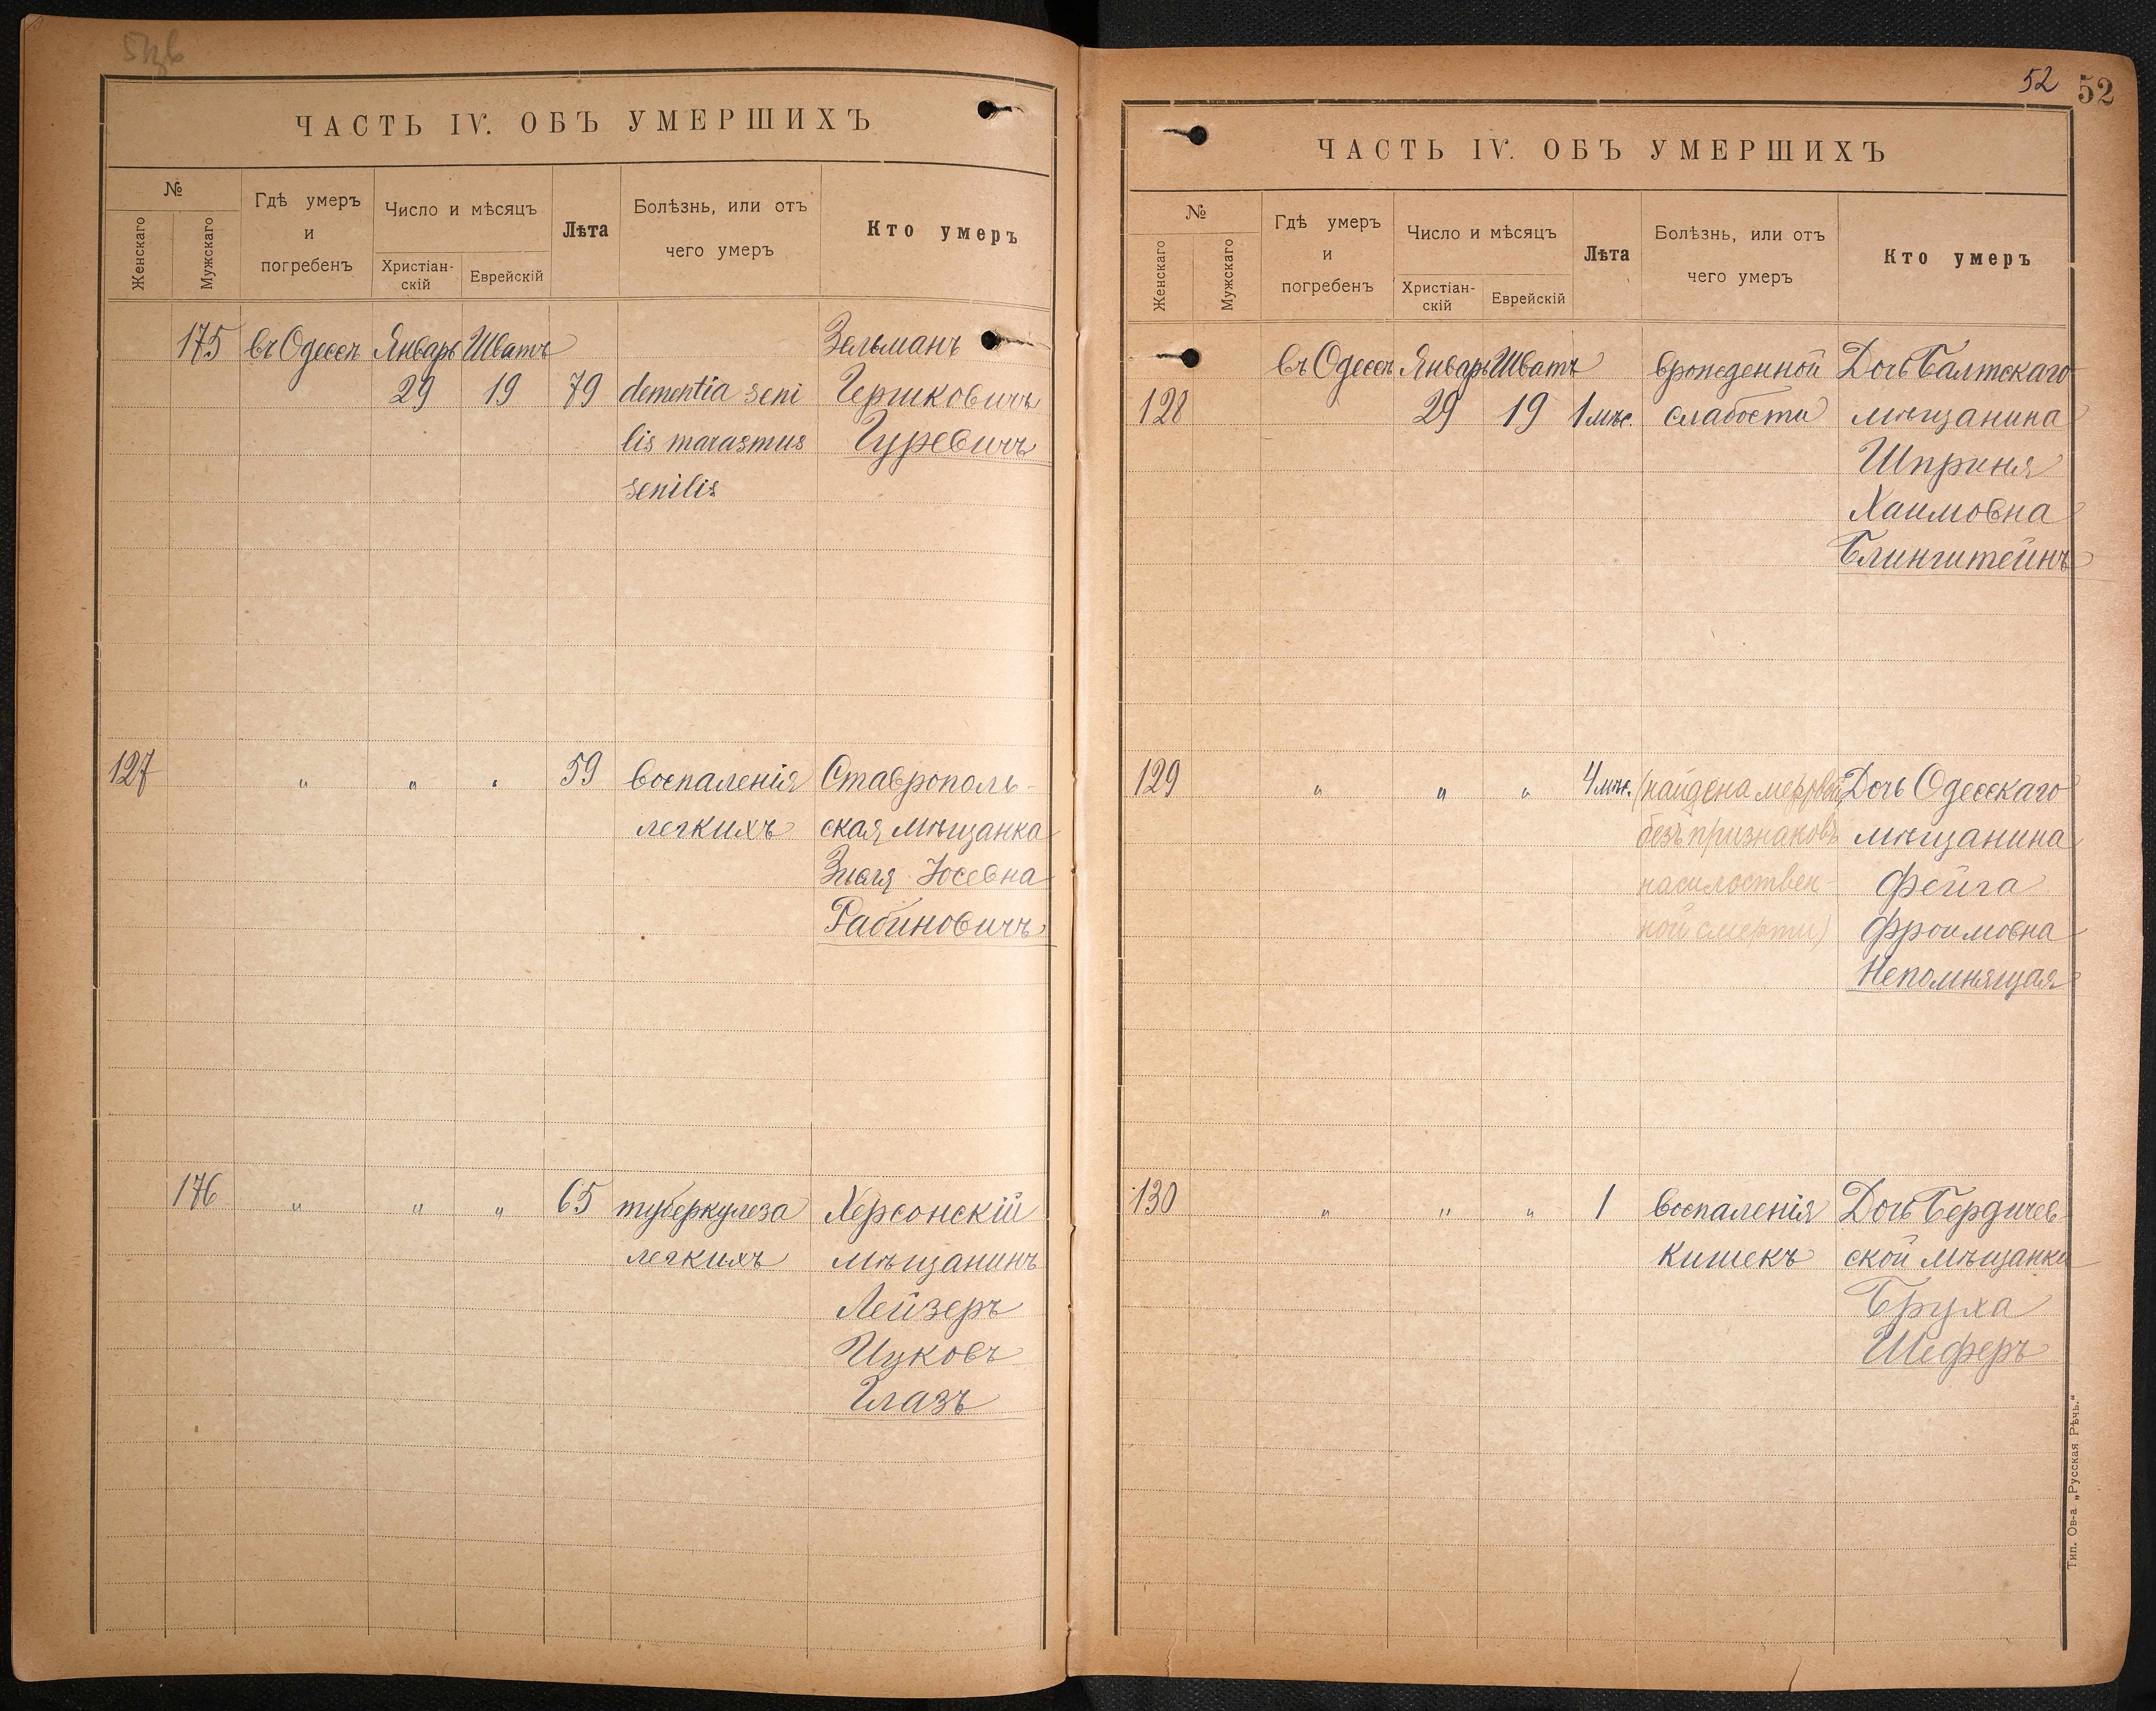 ЧАСТЬ IV. ОБЪ УМЕРШИХЪ
№
Женскаго
Мужскаго
Гдѣ умеръ
и
погребенъ
Число и мѣсяцъ
Христіан-
скій
Еврейскій
Лѣта
Болѣзнь, или отъ
чего умеръ
Кто умеръ
175 въ Одессѣ Январь Шватъ Зельманъ
29 19 79 dementia seni Гершковичъ
lis marasmus Гуревичъ
senilis
127 " " " 59 воспаленія Ставрополь-
легкихъ ская мѣщанка
Юсевна
Рабиновичъ
176 " " " 65 туберкулеза Херсонскій
легкихъ мѣщанинъ
Лейзеръ
Ицковъ
Глазъ
52 52
ЧАСТЬ IV. ОБЪ УМЕРШИХЪ
№
Женскаго
Мужскаго
Гдѣ умеръ
и
погребенъ
Число и мѣсяцъ
Христіан-
скій
Еврейскій
Лѣта
Болѣзнь, или отъ
чего умеръ
Кто умеръ
въ Одессѣ Январь Шватъ врожденной Дочь Балтскаго
128 29 19 1 мѣс. слабости мѣщанина
Шприня
Хаимовна
Блинштейнъ
129 " " " 4 мѣс. (найдена мертвой Дочь Одесскаго
безъ признаковъ мѣщанина
насильствен- Фейга
ной смерти) Фроимовна
Непомнящая
130 " " " 1 воспаленія Дочь Бердичев
кишекъ ской мѣщанки
Бруха
Шеферъ
Тип. Ов-а „Русская Рѣчь."